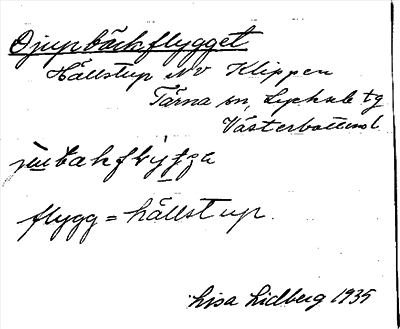 Djupbäckflygget
Hällstup NV Klippen
Tärna sn, Lycksele tg
Västerbottens l.
flygg = hällstup.
Lisa Lidberg 1935